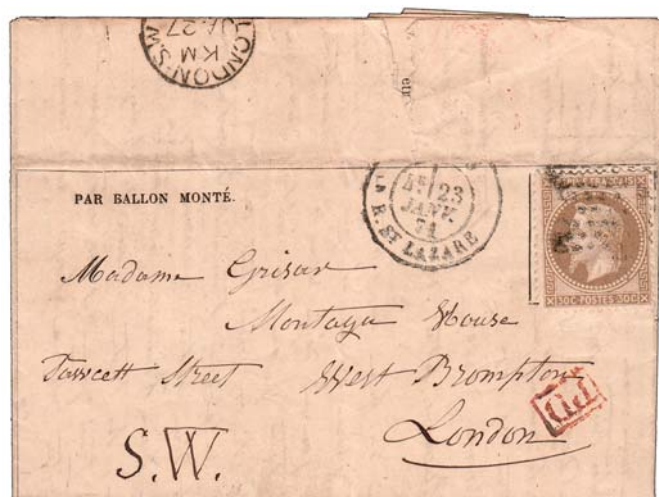 LONDON·S.W
KM
JA 27
etr
PAR BALLON MONTÉ.
23
JANV.
71
R. ST LAZARE
30C POSTES 30C
Madame Grisar
Montagu House
Fawcett Street West Brompton
PD
London
S.W.